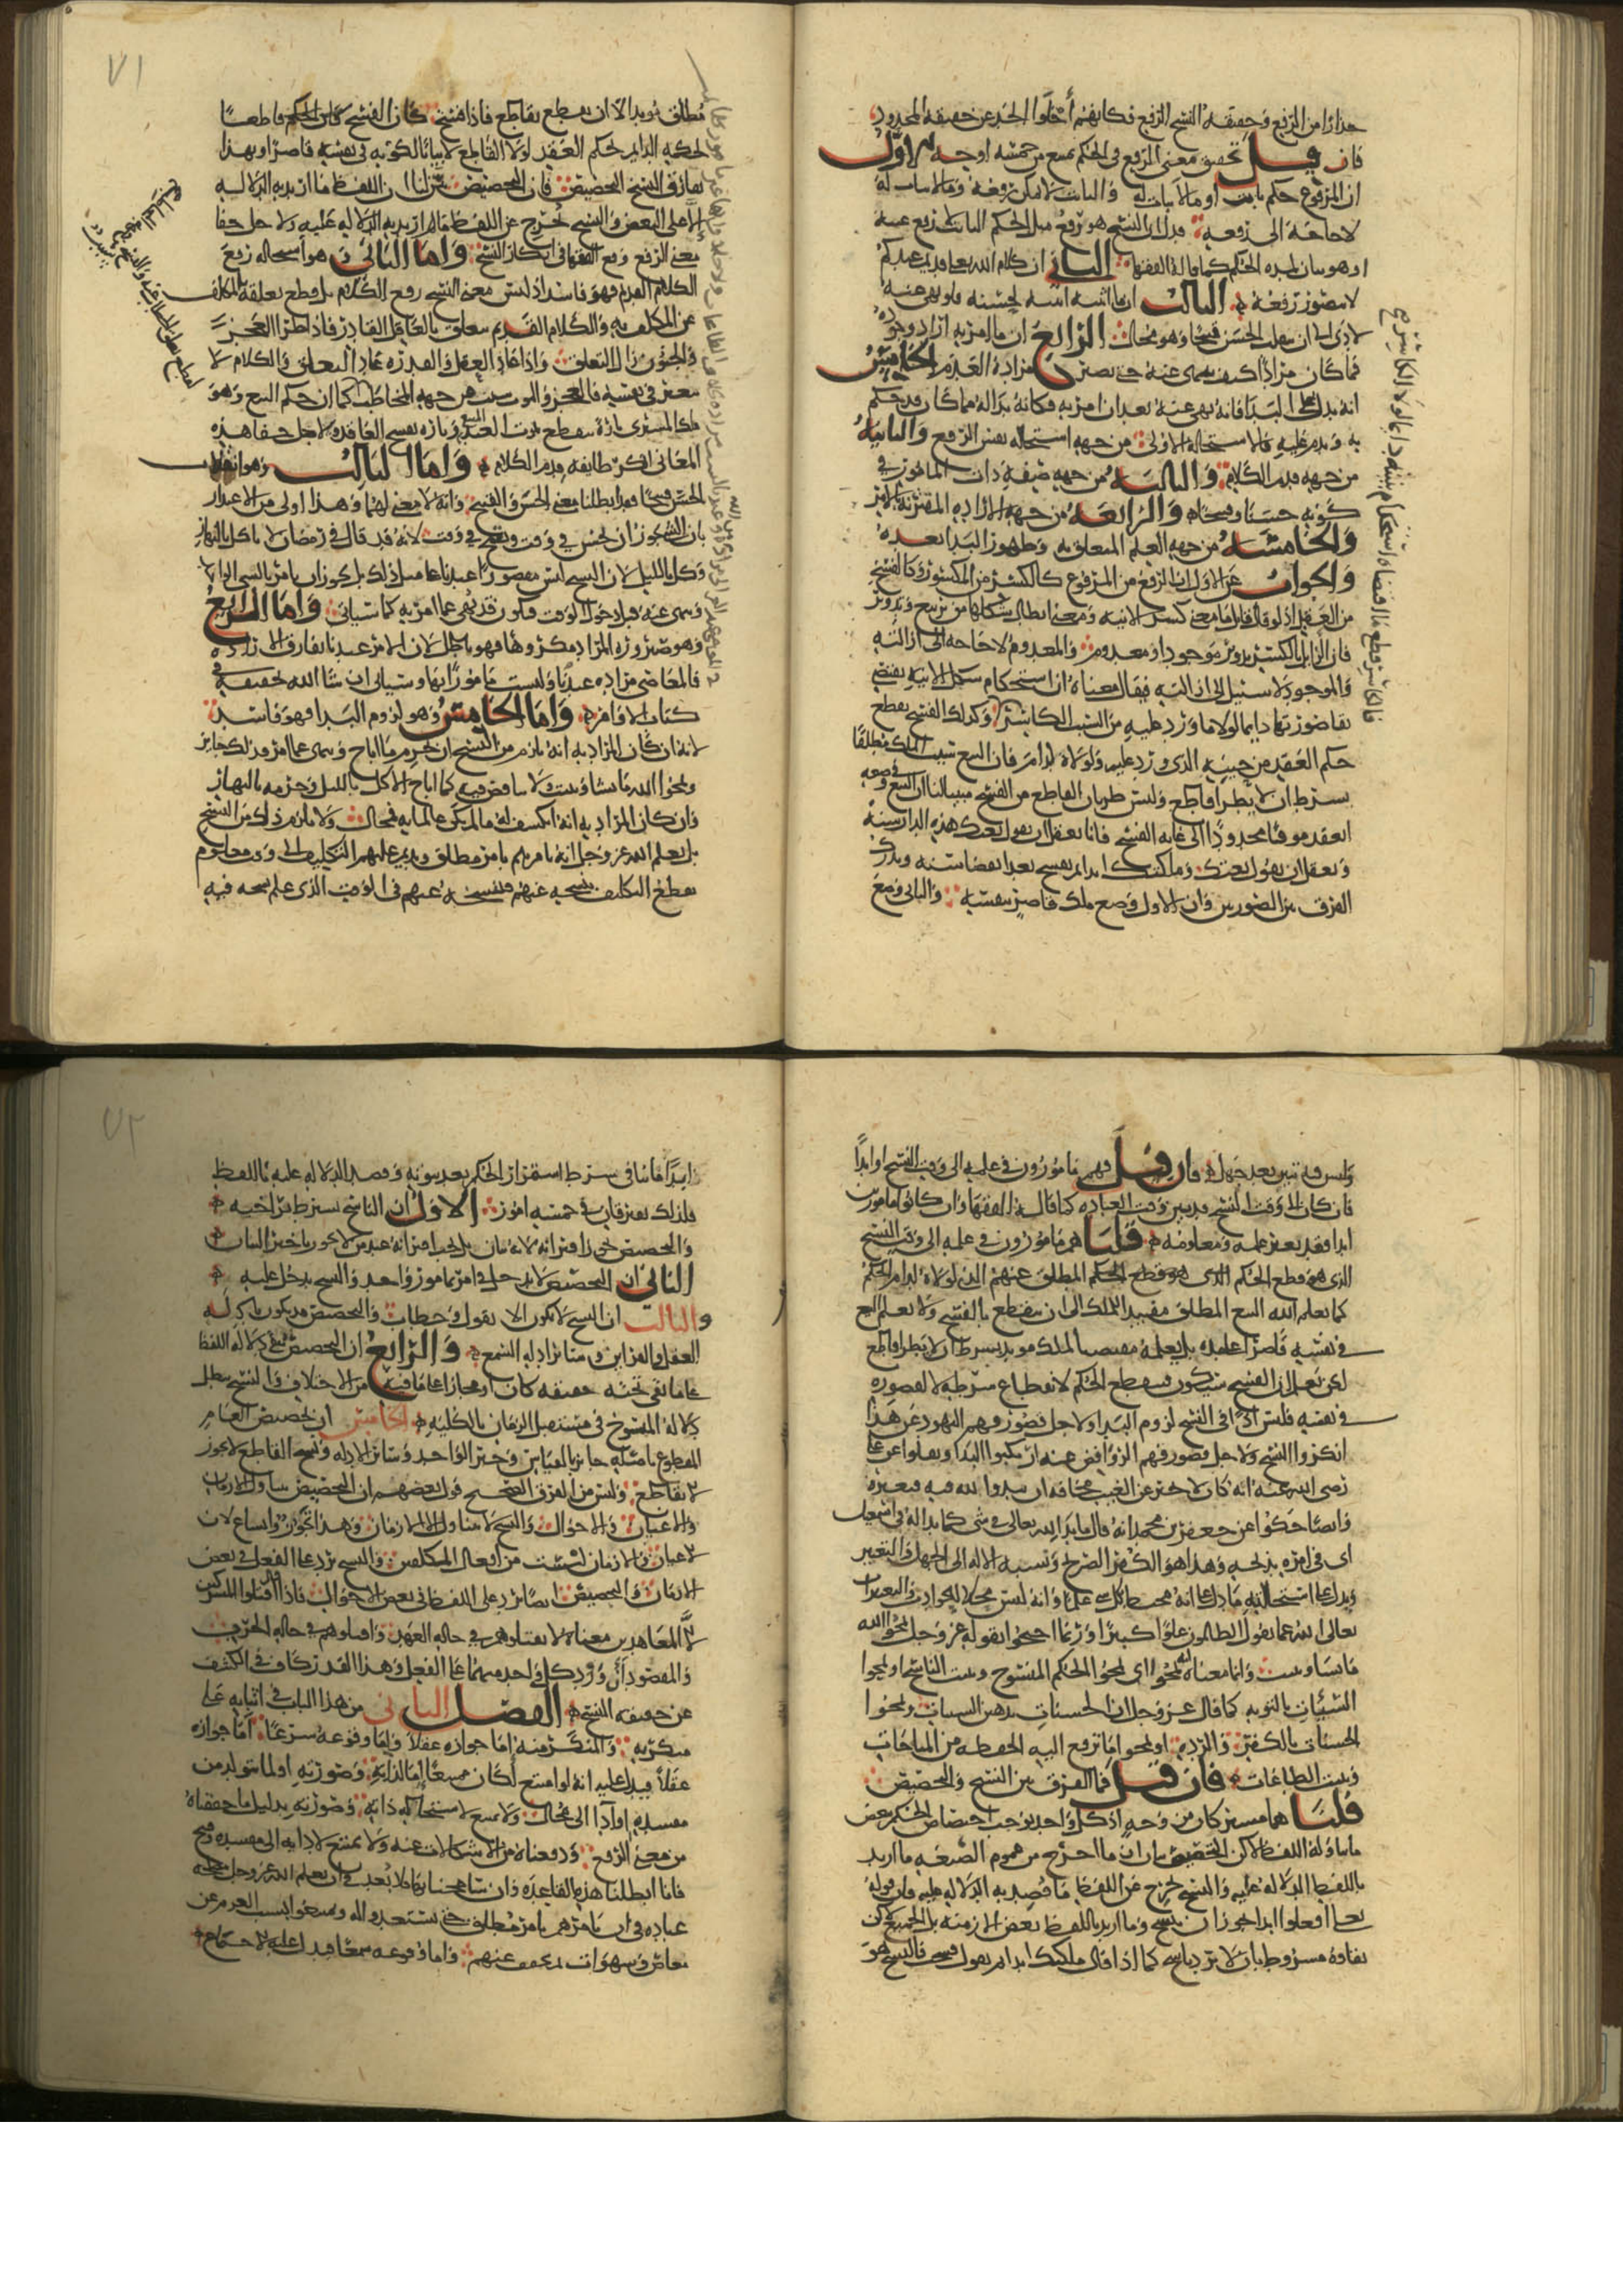 حذارا من الرفع وحقيقة النسخ الرفع فكانهم أخلوا الحد عن حقيقة المحدود
فان قيل تحقيق معنى الرفع في الحكم يمتنع من خمسة اوجه الاول
ان المرفوع حكم ثابت او ما لا ثبات له والثابت لا يمكن رفعه وما لا ثبات له
لا حاجة الى رفعه فدل ان النسخ هو رفع مثل الحكم الثابت لا رفع عينه
او هو بيان لمدة الحكم كما قاله الفقها الثاني ان كلام الله تعالى قديم عندكم
لا يتصور رفعه الثالث ان ما اثبته الله اثبته لحسنه فلو نهى عنه
لادى الى ان ينقلب الحسن قبيحا وهو محال الرابع ان ما امر به اراد وجوده
فما كان مرادا كيف ينهى عنه حتى يصير مراد العدم الخامس
انه يدل على البدا فانه نهى عنه بعد ان امر به فكانه بدا له مما كان قد حكم
به وندم عليه فالاستحالة الاولى من جهة استحالة نفس الرفع والثانية
من جهة قدم الكلام والثالثة من جهة صفة ذات المامور في
كونه حسنا وقبيحا والرابعة من جهة الارادة المقترنة بالامر
والخامسة من جهة العلم المتعلق به وظهور البدا بعده
والجواب عن الاول ان الرفع من المرفوع كالكسر من المكسور وكالفسخ
من العقد اذ لو قال قايل ما معنى كسر الانية ومعنى ابطال شكلها من تربيع وتدوير
فان الزايل بالكسر تدوير موجود او معدوم والمعدوم لا حاجة الى ازالته
والموجود لا سبيل الى ازالته فيقال معناه ان استحكام شكل الانية يقتضي
بقا صورتها دايما لولا ما ورد عليه من السبب الكاسر وكذلك الفسخ يقطع
حكم العقد من حيث الذي ورد عليه ولولاه لدام فان البيع سبب الملك مطلقا
بشرط ان لا يطرا قاطع وليس طريان القاطع من الفسخ مبينا لنا ان البيع في وضعه
انعقد موقتا محدودا الى غاية الفسخ فانا نعقل ان يقول بعتك هذه الدار سنة
ونعقل ان يقول بعتك وملكتك ابدا ثم يفسخ بعد انقضا سنة وندرك
الفرق بين الصورتين وان الاول وضع ملك قاصر بنفسه والثاني وضع
٧١
مطلق مؤبد الا ان يقطع بقاطع فاذا فسخ كان الفسخ كان الحكم قاطعا
لحكمه الدايم لحكم العقد لولا القاطع لا بيانا لكونه في نفسه قاصرا وبهذا
يفارق النسخ التخصيص فان التخصيص يبين لنا ان اللفظ ما اريد به الدلالة
إلا على البعض والنسخ يخرج عن اللفظ ما اريد به الدلالة عليه ولاجل خفا
معنى الرفع وقع الفقها في انكار النسخ واما الثاني وهو استحالة رفع
الكلام القديم فهو فاسد اذ ليس معنى النسخ رفع الكلام بل قطع تعلقه بالمكلف
عن المكلف به والكلام القديم يتعلق بالعاقل القادر فاذا طرا العجز
والجنون زال التعلق واذا عاد العقل والقدرة عاد التعلق والكلام لا
يتغير في نفسه فالعجز والموت سبب من جهة المخاطب كما ان حكم البيع وهو
ملك المشتري تارة ينقطع بموت العبد المبيع وتارة بفسخ العاقد ولاجل خفا هذه
المعاني انكر طايفة قدم الكلام واما الثالث وهو انقلاب
الحسن قبيحا فقد ابطلنا معنى الحسن والقبح وانه لا معنى لهما وهذا اولى من الاعتذار
بان الشي يجوز ان يحسن في وقت ويقبح في وقت لانه قد قال في رمضان لا تاكل بالنهار
وكل بالليل لان النسخ ليس مقصورا عندنا على مثل ذلك بل يجوز ان يامر بالشي الواحد
ونهى عنه قبل دخول الوقت فيكون قد نهي عما امر به كما سياتي واما الرابع
وهو صيرورة المراد مكروها فهو باطل لان الامر عندنا يفارق الارادة
فالمعاصي مرادة عندنا وليست مامورا بها وسياتي ان شا الله تحقيقه في
كتاب الاوامر واما الخامس وهو لزوم البدا فهو فاسد
لانه ان كان المراد به انه يلزم من النسخ ان يحرم ما اباح وينهى عما امر فذلك جايز
ويمحوا الله ما يشا ويثبت ولا تناقض فيه كما اباح الاكل بالليل وحرمه بالنهار
فان كان المراد به انه انكشف له ما لم يكن عالما به فمحال ولا يلزم ذلك من النسخ
بل يعلم الله عز وجل انه يامرهم بامر مطلق ويديم عليهم التكليف الى وقت معلوم
يقطع التكليف بنسخه عنهم فينسخه عنهم في الوقت الذي علم نسخه فيه
٧٢
وليس فيه تبين بعد جهل فان قيل فهم مامورون في علمه الى وقت النسخ او ابدا
فان كان الى وقت النسخ فهو بيان وقت العبادة كما قاله الفقها وان كانوا مامورين
ابدا فقد تغير علمه ومعلومه قلنا هم مامورون في علمه الى وقت النسخ
الذي هو قطع الحكم الذي هو قطع الحكم المطلق عنهم الذي لولاه لدام الحكم
كما يعلم الله البيع المطلق مفيدا للملك الى ان ينقطع بالفسخ ولا يعلم البيع
في نفسه قاصرا على مدة بل يعلمه مقتضيا لملك مؤبد بشرط ان لا يطرا قاطع
لكن يعلم ان الفسخ سيكون فينقطع الحكم لانقطاع شرطه لا لقصوره
في نفسه فليس اذا في النسخ لزوم البدا ولاجل قصور فهم اليهود عن هذا
انكروا النسخ ولاجل قصور فهم الروافض عنه ارتكبوا البدا ونقلوا عن علي
رضي الله عنه انه كان لا يخبر عن الغيب مخافة ان يبدو لله فيه فيغيره
وايضا حكوا عن جعفر بن محمد انه قال ما بدا لله تعالى في شي كما بدا له في اسمعيل
اي في امره بذبحه وهذا هو الكفر الصريح ونسبة الاله الى الجهل والتغير
ويدل على استحالته ما دل على انه محيط بكل شي علما وانه ليس محلا للحوادث والتغيرات
تعالى الله عما يقول الظالمون علوا كبيرا وربما احتجوا بقوله عز وجل يمحوا الله
ما يشا ويثبت وانما معناه انه يمحوا اي يمحوا الحكم المنسوخ ويثبت الناسخ او يمحوا
السيئات بالتوبة كما قال عز وجل ان الحسنات يذهبن السيات ويمحوا
الحسنات بالكفر والردة او يمحوا ما ترفع اليه الحفظة من المباحات
ويثبت الطاعات فان قيل فما الفرق بين النسخ والتخصيص
قلنا هما مشتركان من وجه اذ كل واحد يوجب اختصاص الحكم ببعض
ما تناوله اللفظ لاكن التخصيص بيان ان ما اخرج من عموم الصيغة ما اريد
باللفظ الدلالة عليه والنسخ يخرج عن اللفظ ما قصد به الدلالة عليه فان قوله
تعالى افعلوا ابدا يجوز ان ينسخ وما اريد باللفظ بعض الازمنة بل الجميع لكن
بقاوه مشروط بان لا يرد ناسخ كما اذا قال ملكتك ابدا ثم يقول فسخت فالفسخ هو
ابدا ما ينافي شرط استمرار الحكم بعد ثبوته وقصد الدلالة عليه باللفظ
فلذلك يفترقان في خمسة امور الاول ان الناسخ يشترط تراخيه
والتخصيص يجوز اقترانه لانه بيان بل يجب اقترانه عند من لا يجوز تاخير البيان
الثاني ان التخصيص لا يدخل في امر بمامور واحد والنسخ يدخل عليه
والثالث ان النسخ لا يكون الا بقول وخطاب والتخصيص قد يكون بادلة
العقل والقراين وساير ادلة السمع والرابع ان التخصيص يبقي دلالة اللفظ
على ما بقي تحته حقيقة كان او مجازا على ما فيه من الاختلاف والنسخ يبطل
دلالة المنسوخ في مستقبل الزمان بالكلية الخامس ان تخصيص العام
المقطوع باصله جايز بالقياس وخبر الواحد وسائر الادلة ونسخ القاطع لا يجوز
الا بقاطع وليس من الفرق الصحيح قول بعضهم ان التخصيص يتناول الازمان
والاعيان والاحوال والنسخ لا يتناول الا الازمان وهذا تجوز واتساع لان
الاعيان والازمان ليست من افعال المكلفين والنسخ يرد على الفعل في بعض
الازمان والتخصيص ايضا يرد على اللفظ في بعض الاحوال فاذا قال اقتلوا المشركين
الا المعاهدين معناه لا تقتلوهم في حالة العهد واقتلوهم في حالة الحرب
والمقصود أن ورود كل واحد منهما على الفعل وهذا القدر كاف في الكشف
عن حقيقة النسخ الفصل الثاني من هذا الباب في اثباته على
منكريه والمنكر منه إما جوازه عقلا وإما وقوعه شرعا أما جوازه
عقلا فيدل عليه انه لو امتنع لكان ممتنعا إما لذاته وصورته او لما يتولد من
مفسدة او أدا الى محال ولا يمتنع لاستحالة ذاته وصورته بدليل ما حققناه
من معنى الرفع ودفعناه من الاشكالات عنه ولا يمتنع لادايه الى مفسدة وقبح
فانا ابطلنا هذه القاعدة وان سامحنا بها فلا بعد في ان يعلم الله عز وجل مصلحة
عباده في ان يامرهم بامر مطلق حتى يستعدوا له ويمتنعوا بسبب العزم عن
معاص وشهوات ثم يخفف عنهم واما وقوعه سمعا فيدل عليه الاجماع